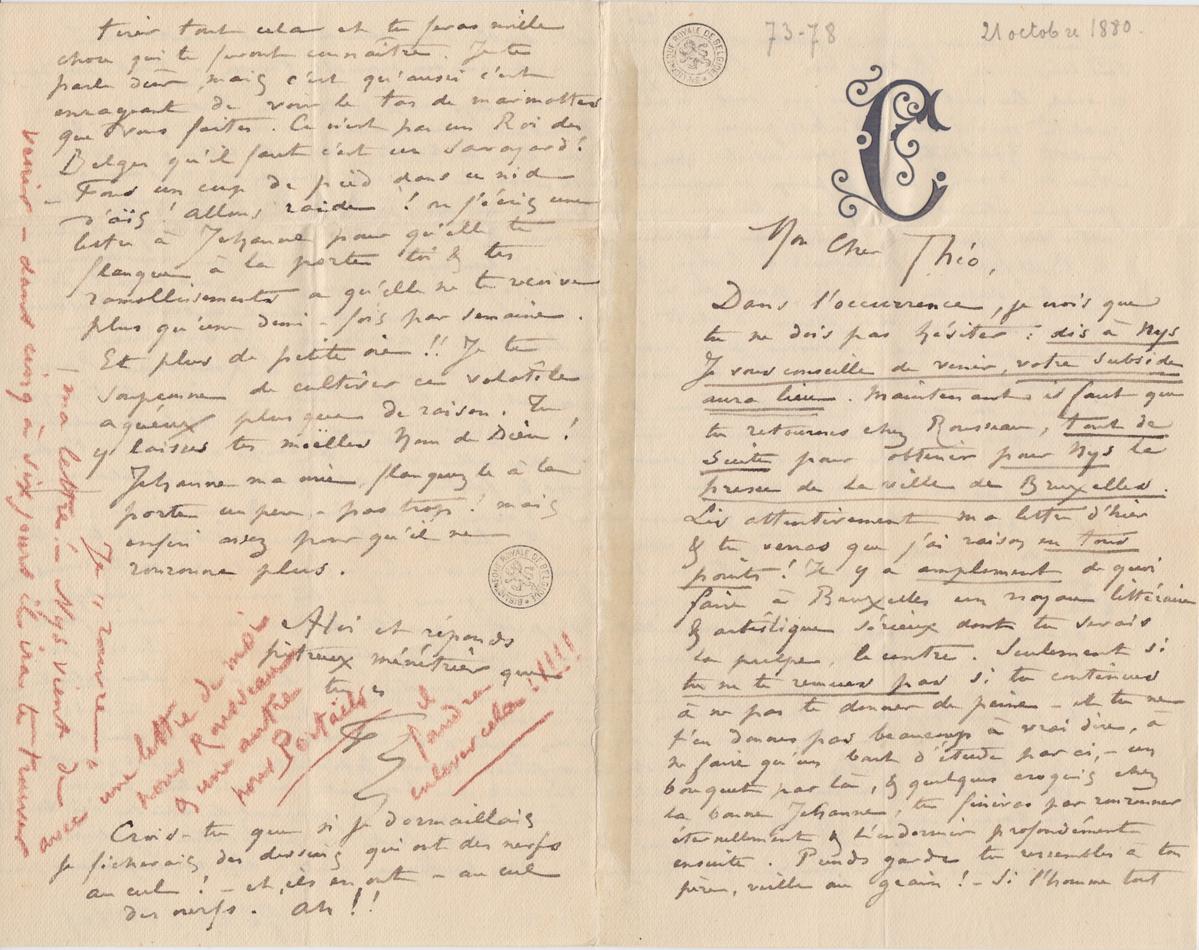 73-78
21 octobre 1880.
BIBLIOTHEQUE ROYALE DE BELGIQUE
Mon Cher Théo,
Dans l'occurrence, je crois que
tu ne dois pas hésiter : dis à Nys
Je vous conseille de venir, votre subside
aura lieu. Maintenant il faut que
tu retournes chez Rousseau, tout de
suite pour obtenir pour Nys la
presse de la ville de Bruxelles.
Lis attentivement ma lettre d'hier
& tu verras que j'ai raison en tous
points ! Il y a amplement de quoi
faire à Bruxelles un noyau littéraire
& artistique sérieux dont tu serais
la pulpe, le centre. Seulement si
tu ne te remues pas si tu continues
à ne pas te donner de peine – et tu ne
t'en donnes pas beaucoup à vrai dire, à
ne faire qu'un bout d'étude par ci, – un
bouquet par là, & quelques croquis chez
la bonne Jehanne, tu finiras par ronronner
éternellement & t'endormir profondément
ensuite. Prends garde tu ressembles à ton
père, veille au grain ! – Si l'homme tout
tirer tout cela et tu feras mille
chose qui te feront connaître. Je te
parle dur, mais c'est qu'aussi c'est
enrageant de voir le tas de marmottes
que vous faites. Ce n'est pas un Roi des
Belges qu'il faut c'est un Savoyard !
– Fous un coup de pied dans ce nid
d'aïs ! allons raide ! ou j'écris une
lettre à Jehanne pour qu'elle te
flanque à la porte toi & tes
ramollissements & qu'elle ne te reçoive
plus qu'une demi-fois par semaine.
Et plus de petite oie !! Je te
soupçonne de cultiver ce volatile
aqueux plus que de raison. Tu
y laisses tes moëlles Nom de Dieu !
Jehanne ma mie, flanquez le à la
porte un peu – pas trop ! mais
enfin assez pour qu'il ne
ronronne plus.
BIBLIOTHEQUE ROYALE DE BELGIQUE
et réponds
piteux ménétrier que
tu es
Crois-tu que si je dormaillais
je ficherais des dessins qui ont des nerfs
au cul ! – et ils en ont – au cul
des nerfs. Ah !!
Je "rouvre"
ma lettre : – Nys vient de
venir – dans cinq à six jours il ira te trouver
avec
une lettre de moi
pour Rousseau
& une autre
pour Portaels
il
faudra
enlever cela !!!!!